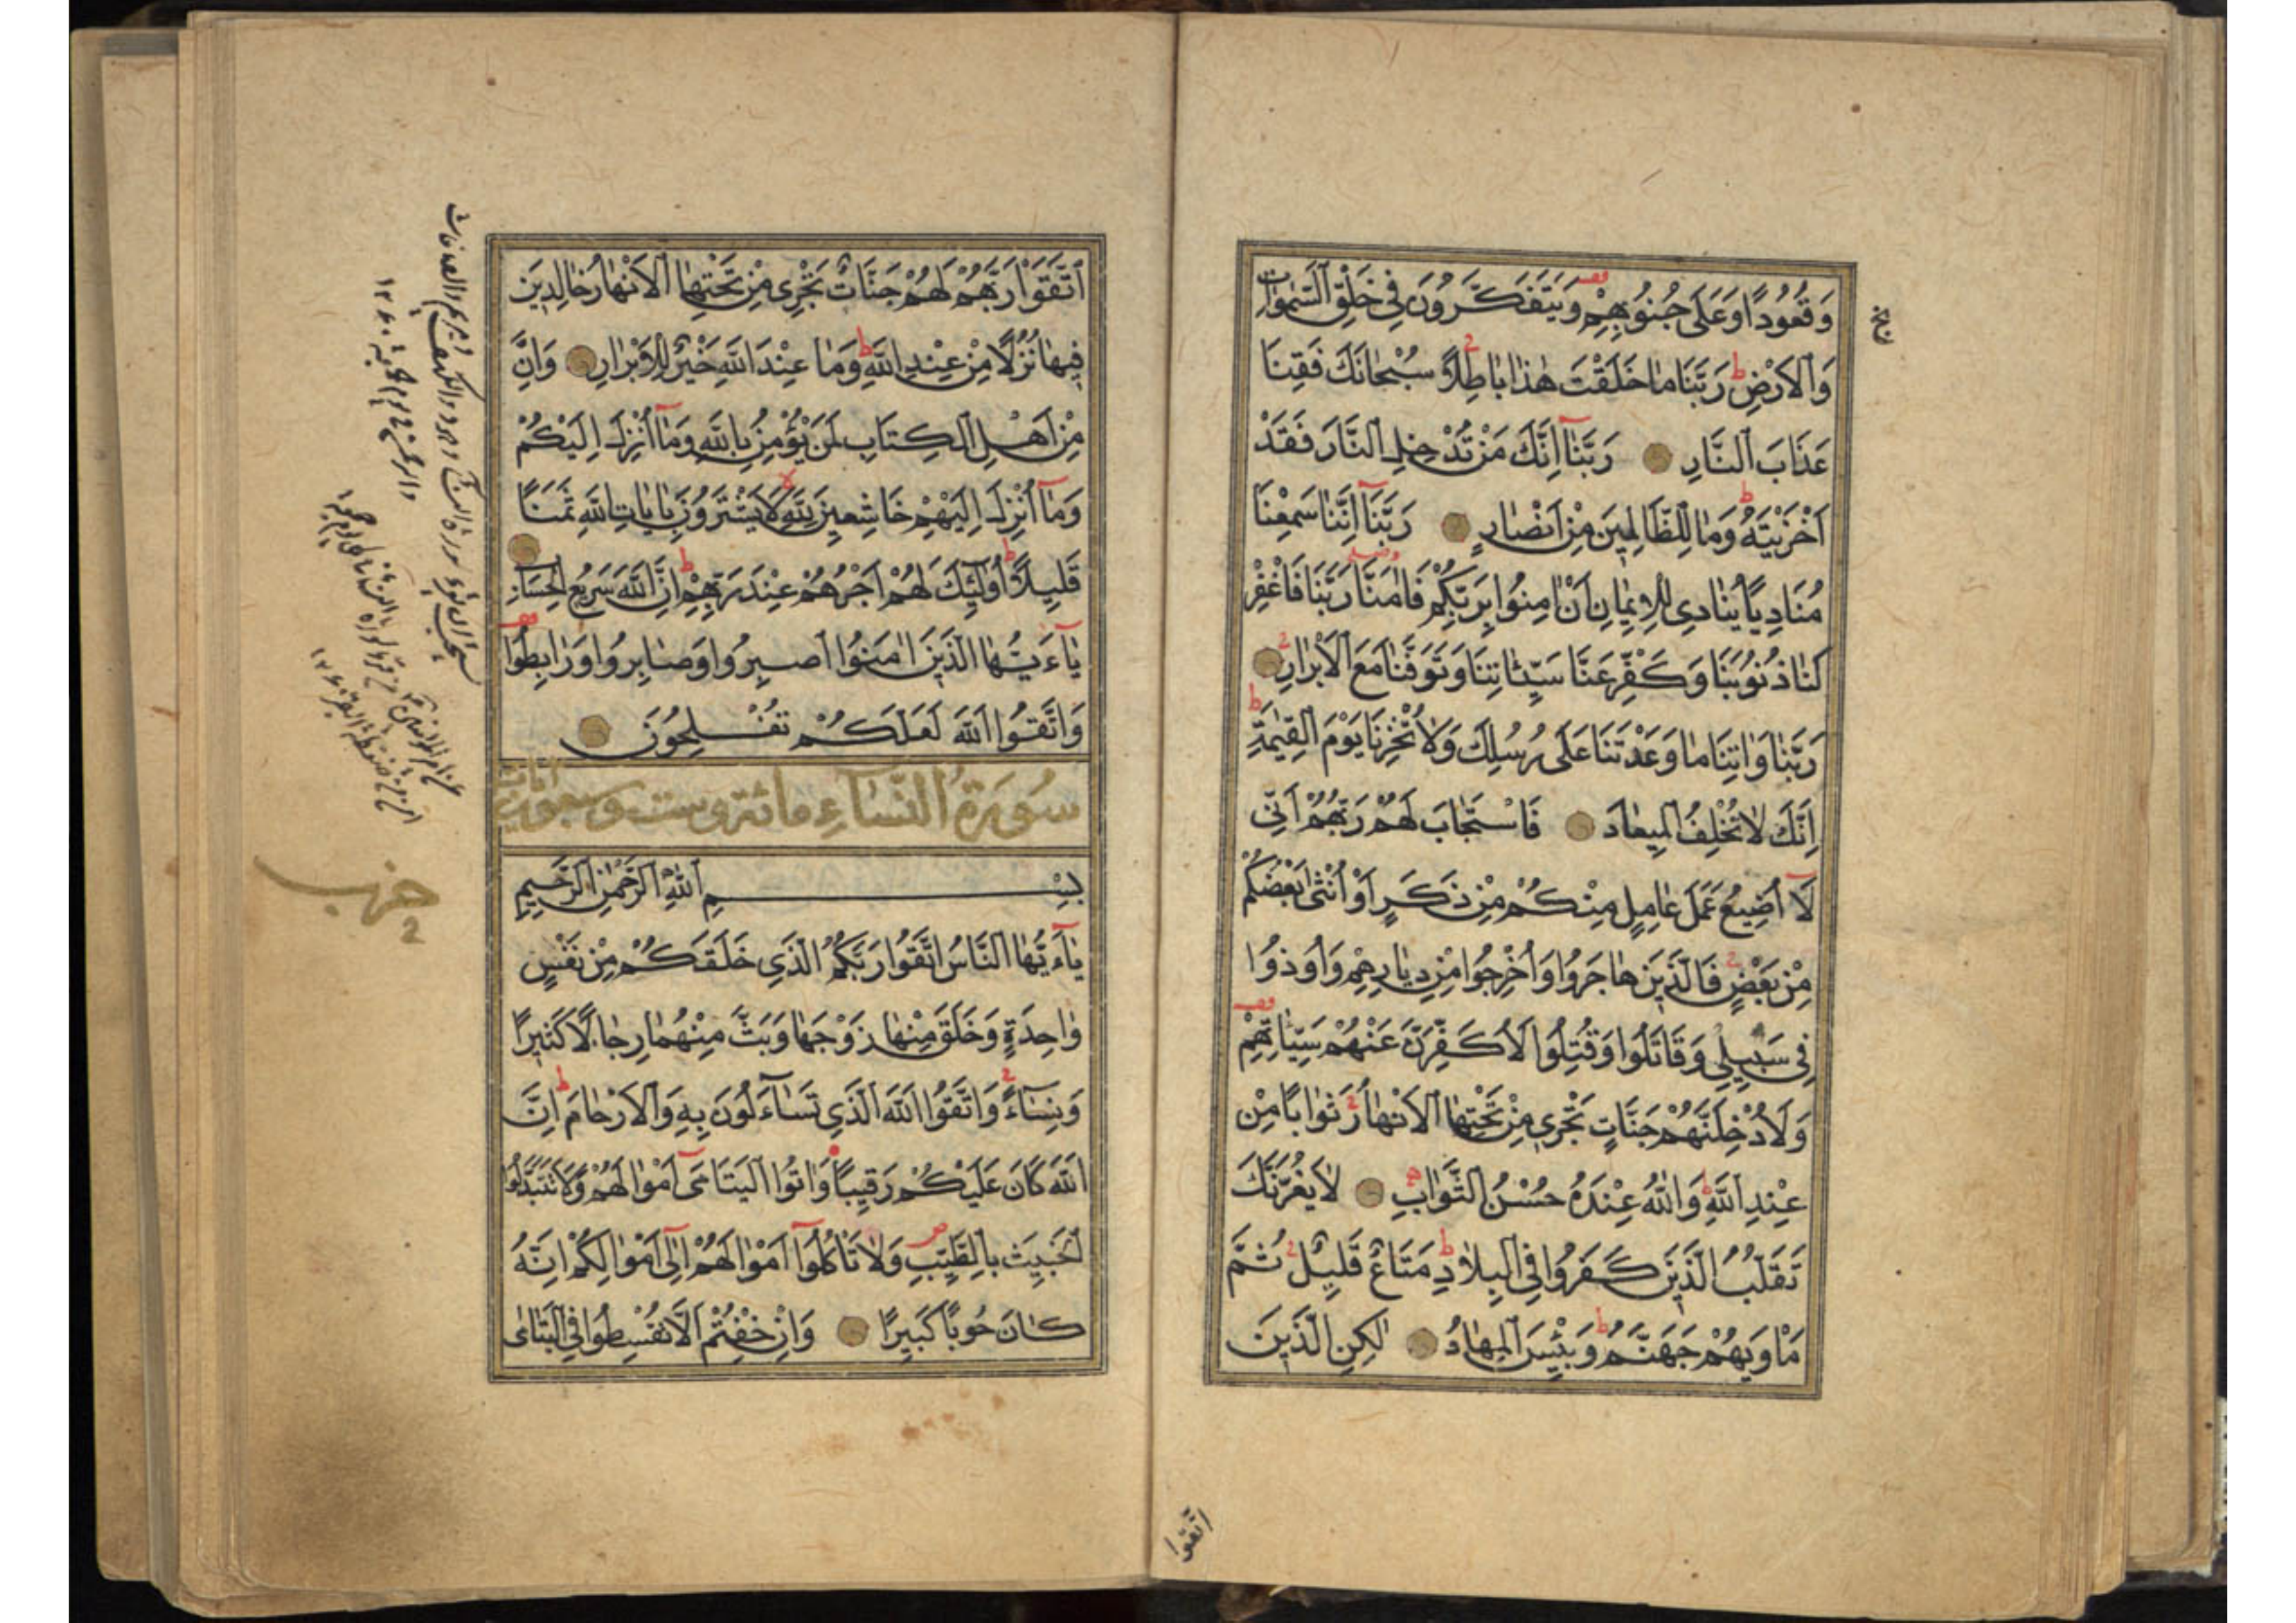 وَقُعُودًا وَعَلَى جُنُوبِهِمْ وَيَتَفَكَّرُونَ فِي خَلْقِ السَّمٰوَاتِ
وَالْاَرْضِ رَبَّنَا مَا خَلَقْتَ هٰذَا بَاطِلًا سُبْحَانَكَ فَقِنَا
عَذَابَ النَّارِ رَبَّنَا اِنَّكَ مَنْ تُدْخِلِ النَّارَ فَقَدْ
اَخْزَيْتَهُ وَمَا لِلظَّالِمِينَ مِنْ اَنْصَارٍ رَبَّنَا اِنَّنَا سَمِعْنَا
مُنَادِيًا يُنَادِي لِلْاِيمَانِ اَنْ اٰمِنُوا بِرَبِّكُمْ فَاٰمَنَّا رَبَّنَا فَاغْفِرْ
لَنَا ذُنُوبَنَا وَكَفِّرْ عَنَّا سَيِّئَاتِنَا وَتَوَفَّنَا مَعَ الْاَبْرَارِ
رَبَّنَا وَاٰتِنَا مَا وَعَدْتَنَا عَلَى رُسُلِكَ وَلَا تُخْزِنَا يَوْمَ الْقِيٰمَةِ
اِنَّكَ لَا تُخْلِفُ الْمِيعَادَ فَاسْتَجَابَ لَهُمْ رَبُّهُمْ اَنِّي
لَا اُضِيعُ عَمَلَ عَامِلٍ مِنْكُمْ مِنْ ذَكَرٍ اَوْ اُنْثَى بَعْضُكُمْ
مِنْ بَعْضٍ فَالَّذِينَ هَاجَرُوا وَاُخْرِجُوا مِنْ دِيَارِهِمْ وَاُوذُوا
فِي سَبِيلِي وَقَاتَلُوا وَقُتِلُوا لَاُكَفِّرَنَّ عَنْهُمْ سَيِّئَاتِهِمْ
وَلَاُدْخِلَنَّهُمْ جَنَّاتٍ تَجْرِي مِنْ تَحْتِهَا الْاَنْهَارُ ثَوَابًا مِنْ
عِنْدِ اللّٰهِ وَاللّٰهُ عِنْدَهُ حُسْنُ الثَّوَابِ لَا يَغُرَّنَّكَ
تَقَلُّبُ الَّذِينَ كَفَرُوا فِي الْبِلَادِ مَتَاعٌ قَلِيلٌ ثُمَّ
مَاْوٰيهُمْ جَهَنَّمُ وَبِئْسَ الْمِهَادُ لٰكِنِ الَّذِينَ
اتقوا
اتَّقَوْا رَبَّهُمْ لَهُمْ جَنَّاتٌ تَجْرِي مِنْ تَحْتِهَا الْاَنْهَارُ خَالِدِينَ
فِيهَا نُزُلًا مِنْ عِنْدِ اللّٰهِ وَمَا عِنْدَ اللّٰهِ خَيْرٌ لِلْاَبْرَارِ وَاِنَّ
مِنْ اَهْلِ الْكِتَابِ لَمَنْ يُؤْمِنُ بِاللّٰهِ وَمَا اُنْزِلَ اِلَيْكُمْ
وَمَا اُنْزِلَ اِلَيْهِمْ خَاشِعِينَ لِلّٰهِ لَا يَشْتَرُونَ بِاٰيَاتِ اللّٰهِ ثَمَنًا
قَلِيلًا اُولٰئِكَ لَهُمْ اَجْرُهُمْ عِنْدَ رَبِّهِمْ اِنَّ اللّٰهَ سَرِيعُ الْحِسَابِ
يَا اَيُّهَا الَّذِينَ اٰمَنُوا اصْبِرُوا وَصَابِرُوا وَرَابِطُوا
وَاتَّقُوا اللّٰهَ لَعَلَّكُمْ تُفْلِحُونَ
سُورَةُ النِّسَاءِ مائة وست وسبعون ايات
بِسْمِ اللّٰهِ الرَّحْمٰنِ الرَّحِيمِ
يَا اَيُّهَا النَّاسُ اتَّقُوا رَبَّكُمُ الَّذِي خَلَقَكُمْ مِنْ نَفْسٍ
وَاحِدَةٍ وَخَلَقَ مِنْهَا زَوْجَهَا وَبَثَّ مِنْهُمَا رِجَالًا كَثِيرًا
وَنِسَاءً وَاتَّقُوا اللّٰهَ الَّذِي تَسَاءَلُونَ بِهِ وَالْاَرْحَامَ اِنَّ
اللّٰهَ كَانَ عَلَيْكُمْ رَقِيبًا وَاٰتُوا الْيَتَامَى اَمْوَالَهُمْ وَلَا تَتَبَدَّلُوا
الْخَبِيثَ بِالطَّيِّبِ وَلَا تَاْكُلُوا اَمْوَالَهُمْ اِلَى اَمْوَالِكُمْ اِنَّهُ
كَانَ حُوبًا كَبِيرًا وَاِنْ خِفْتُمْ اَلَّا تُقْسِطُوا فِي الْيَتَامَى
حزب